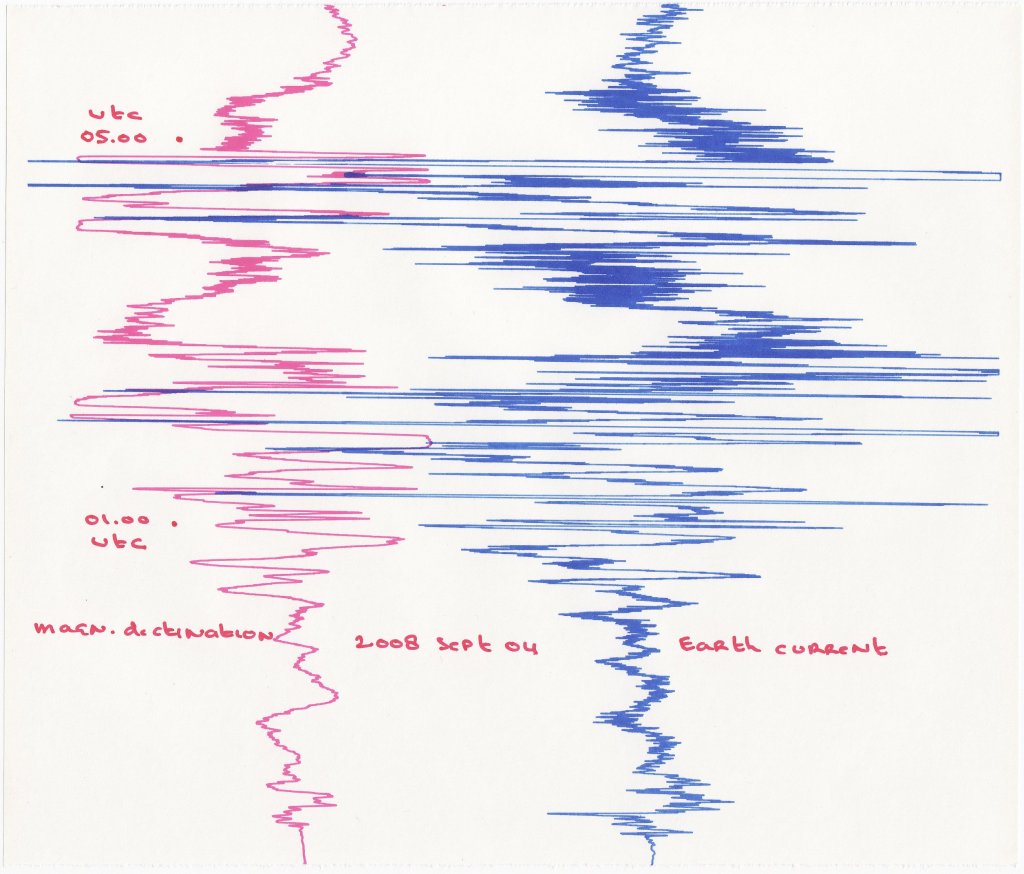 utc
05.00 .
01.00 .
utc
magn. dectination
2008 sept 04
Earth current